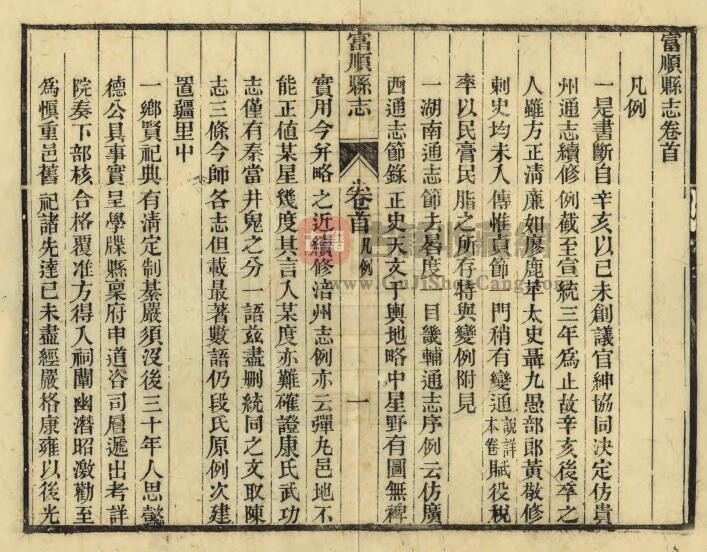 富順縣志卷首
凡例
一是書斷自辛亥以己未創議官紳協同決定仿貴
州通志續修例截至宣統三年爲止故辛亥後卒之
人雖方正淸廉如廖鹿苹太史聶九愚部郎黃敬修
刺史均未入傳惟貞節一門稍有變通說詳本卷賦役稅
率以民膏民脂之所存特與變例附見
一湖南通志節去晷度一目畿輔通志序例云仿廣
西通志節錄正史天文于輿地略中星野有圖無裨
富順縣志
卷首
凡例
一
實用今幷略之近續修涪州志例亦云彈丸邑地不
能正値某星幾度其言入某度亦難確證康氏武功
志僅有秦當井鬼之分一語茲盡删統同之文取陳
志三條今師各志但載最著數語仍段氏原例次建
置疆里中
一鄉賢祀典有淸定制綦嚴須沒後三十年人思懿
德公具事實呈學牒縣稟府申道咨司層遞出考詳
院奏下部核合格覆准方得入祠闡幽潛昭激勸至
爲愼重邑舊祀諸先達已未盡經嚴格康雍以後光
www.GuJiShuCang.com